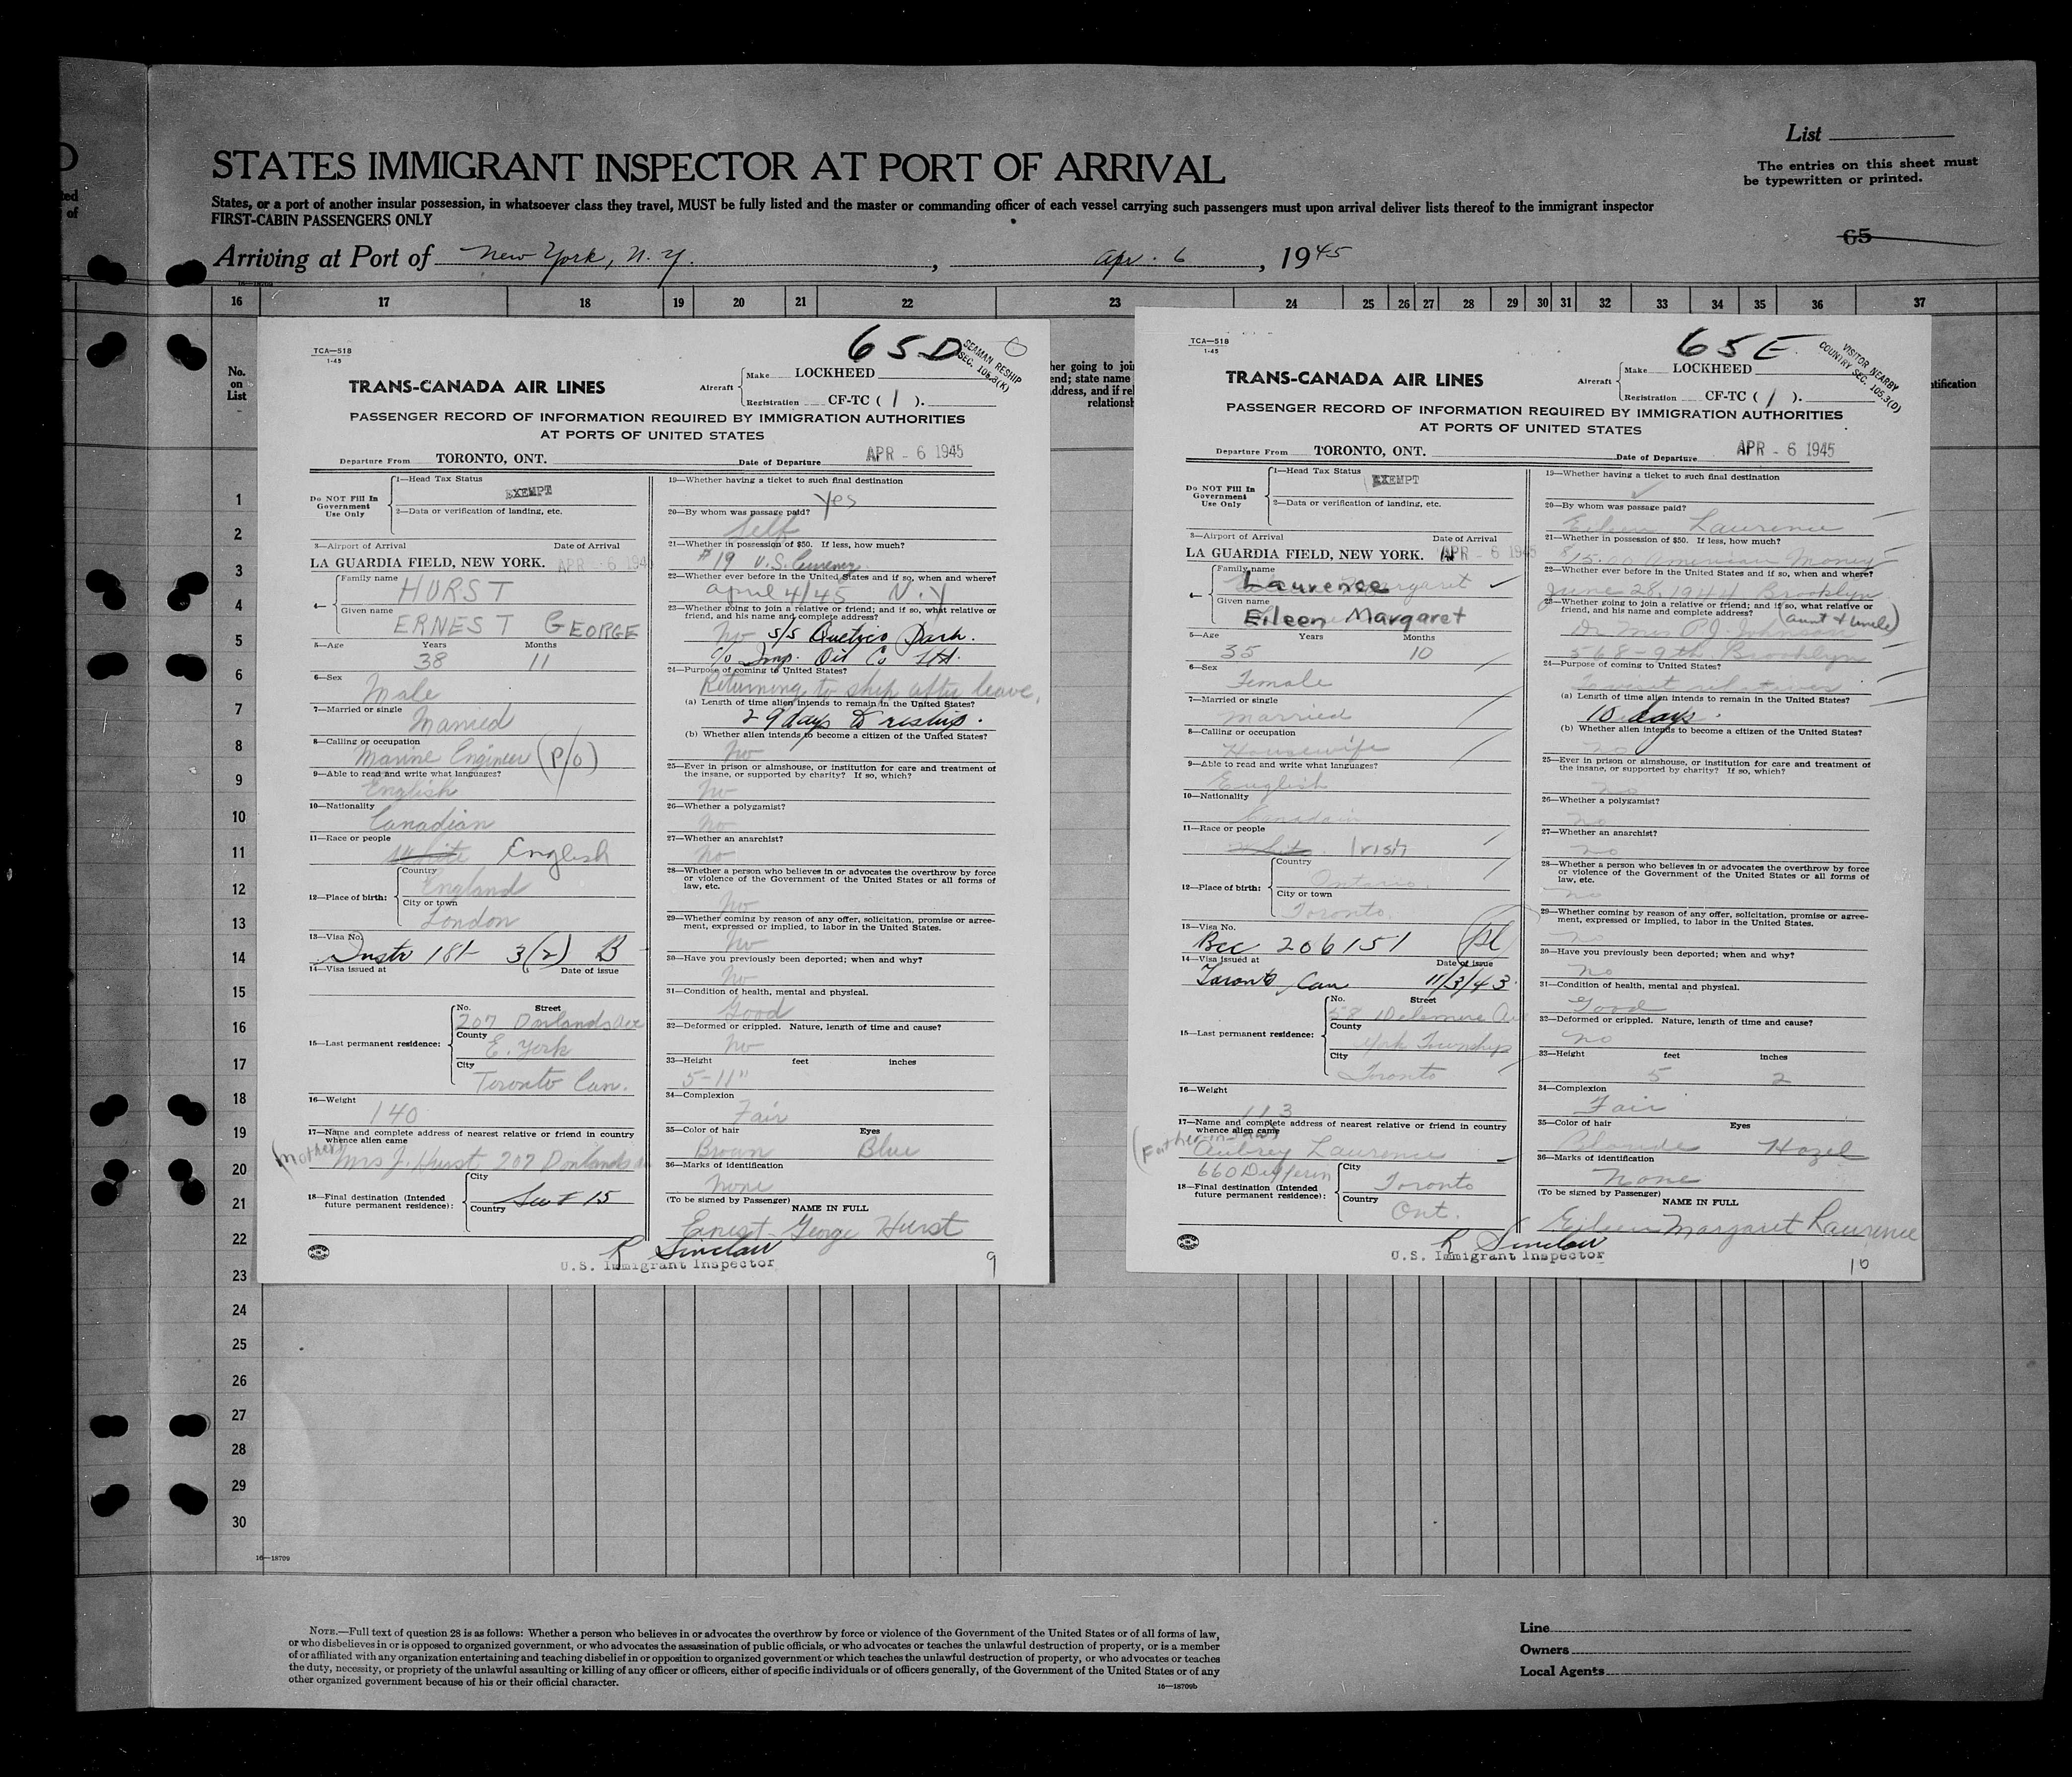 List
The entries on this sheet must
be typewritten or printed.
STATES IMMIGRANT INSPECTOR AT PORT OF ARRIVAL
States, or a port of another insular possession, in whatsoever class they travel, MUST be fully listed and the master or commanding officer of each vessel carrying such passengers must upon arrival deliver lists thereof to the immigrant inspector
FIRST-CABIN PASSENGERS ONLY
65
Arriving at Port of New York, N.Y. , Apr. 6 , 1945
16 17 18 19 20 21 22 23 24 25 26 27 28 29 30 31 32 33 34 35 36 37
No.
on
List
TCA—518
1-45
65D
SEAMAN RESHIP
SEC. 105.3(K)
TRANS-CANADA AIR LINES
Aircraft
Make LOCKHEED
Registration CF-TC ( 1 ).
PASSENGER RECORD OF INFORMATION REQUIRED BY IMMIGRATION AUTHORITIES
AT PORTS OF UNITED STATES
Departure From TORONTO, ONT. Date of Departure APR - 6 1945
Do NOT Fill In
Government
Use Only
1—Head Tax Status
EXEMPT
2—Data or verification of landing, etc.
3—Airport of Arrival Date of Arrival
LA GUARDIA FIELD, NEW YORK. APR - 6 194
4—
Family name
HURST
Given name
ERNEST GEORGE
5—Age Years Months
38 11
6—Sex
Male
7—Married or single
Married
8—Calling or occupation
Marine Engineer (P/O)
9—Able to read and write what languages?
English
10—Nationality
Canadian
11—Race or people
White English
12—Place of birth:
Country
England
City or town
London
13—Visa No.
Instr 181- 3(2) B
14—Visa issued at Date of issue
15—Last permanent residence:
No. Street
207 Donlands Ave
County
E. York
City
Toronto Can.
16—Weight
140
17—Name and complete address of nearest relative or friend in country
whence alien came
(Mother) Mrs J. Hurst 207 Donlands
18—Final destination (Intended
future permanent residence):
City
Country
15
19—Whether having a ticket to such final destination
Yes
20—By whom was passage paid?
Self
21—Whether in possession of $50. If less, how much?
19 U.S. Currency
22—Whether ever before in the United States and if so, when and where?
April 4/45 N.Y
23—Whether going to join a relative or friend; and if so, what relative or
friend, and his name and complete address?
No S/S Quetico Park.
c/o Imp. Oil Co Ltd.
24—Purpose of coming to United States?
Returning to ship after leave.
(a) Length of time alien intends to remain in the United States?
29 days to reship.
(b) Whether alien intends to become a citizen of the United States?
No
25—Ever in prison or almshouse, or institution for care and treatment of
the insane, or supported by charity? If so, which?
No
26—Whether a polygamist?
No
27—Whether an anarchist?
No
28—Whether a person who believes in or advocates the overthrow by force
or violence of the Government of the United States or all forms of
law, etc.
No
29—Whether coming by reason of any offer, solicitation, promise or agree-
ment, expressed or implied, to labor in the United States.
No
30—Have you previously been deported; when and why?
No
31—Condition of health, mental and physical.
Good
32—Deformed or crippled. Nature, length of time and cause?
No
33—Height feet inches
5-11"
34—Complexion
Fair
35—Color of hair Eyes
Brown Blue
36—Marks of identification
None
(To be signed by Passenger)
NAME IN FULL
Ernest George Hurst
R Sinclair
U.S. Immigrant Inspector
9
TCA—518
1-45
65E
VISITOR NEARBY
COUNTRY SEC. 105.3(D)
TRANS-CANADA AIR LINES
Aircraft
Make LOCKHEED
Registration CF-TC ( 1 ).
PASSENGER RECORD OF INFORMATION REQUIRED BY IMMIGRATION AUTHORITIES
AT PORTS OF UNITED STATES
Departure From TORONTO, ONT. Date of Departure APR - 6 1945
Do NOT Fill In
Government
Use Only
1—Head Tax Status
EXEMPT
2—Data or verification of landing, etc.
3—Airport of Arrival Date of Arrival
LA GUARDIA FIELD, NEW YORK. APR - 6 1945
4—
Family name
Laurence
Given name
Eileen Margaret
5—Age Years Months
35 10
6—Sex
Female
7—Married or single
Married
8—Calling or occupation
Housewife
9—Able to read and write what languages?
English
10—Nationality
Canadain
11—Race or people
White Irish
12—Place of birth:
Country
Ontario
City or town
Toronto.
13—Visa No.
Bcc 206151
14—Visa issued at Date of issue
Toronto, Can 11/3/43
15—Last permanent residence:
No. Street
58
County
York Township
City
Toronto
16—Weight
113
17—Name and complete address of nearest relative or friend in country
whence alien came
(Father-in-law)
Aubrey Laurence
660 Dufferin
18—Final destination (Intended
future permanent residence):
City
Toronto
Country
Ont.
19—Whether having a ticket to such final destination
20—By whom was passage paid?
Eileen Laurence
21—Whether in possession of $50. If less, how much?
$15.00 American Money
22—Whether ever before in the United States and if so, when and where?
June 28, 1944 Brooklyn
23—Whether going to join a relative or friend; and if so, what relative or
friend, and his name and complete address? (Aunt & Uncle)
Dr Mrs P.J. Johnson
568-9th. Brooklyn
24—Purpose of coming to United States?
To visit relatives
(a) Length of time alien intends to remain in the United States?
10 days.
(b) Whether alien intends to become a citizen of the United States?
No
25—Ever in prison or almshouse, or institution for care and treatment of
the insane, or supported by charity? If so, which?
No
26—Whether a polygamist?
No
27—Whether an anarchist?
No
28—Whether a person who believes in or advocates the overthrow by force
or violence of the Government of the United States or all forms of
law, etc.
No
29—Whether coming by reason of any offer, solicitation, promise or agree-
ment, expressed or implied, to labor in the United States.
30—Have you previously been deported; when and why?
No
31—Condition of health, mental and physical.
Good
32—Deformed or crippled. Nature, length of time and cause?
No
33—Height feet inches
5 2
34—Complexion
Fair
35—Color of hair Eyes
Blonde Hazel
36—Marks of identification
None
(To be signed by Passenger)
NAME IN FULL
Eileen Margaret Laurence
R Sinclair
U.S. Immigrant Inspector
10
1
2
3
4
5
6
7
8
9
10
11
12
13
14
15
16
17
18
19
20
21
22
23
24
25
26
27
28
29
30
16—18709
NOTE.—Full text of question 28 is as follows: Whether a person who believes in or advocates the overthrow by force or violence of the Government of the United States or of all forms of law,
or who disbelieves in or is opposed to organized government, or who advocates the assassination of public officials, or who advocates or teaches the unlawful destruction of property, or is a member
of or affiliated with any organization entertaining and teaching disbelief in or opposition to organized government or which teaches the unlawful destruction of property, or who advocates or teaches
the duty, necessity, or propriety of the unlawful assaulting or killing of any officer or officers, either of specific individuals or of officers generally, of the Government of the United States or of any
other organized government because of his or their official character.
16—18709b
Line
Owners
Local Agents